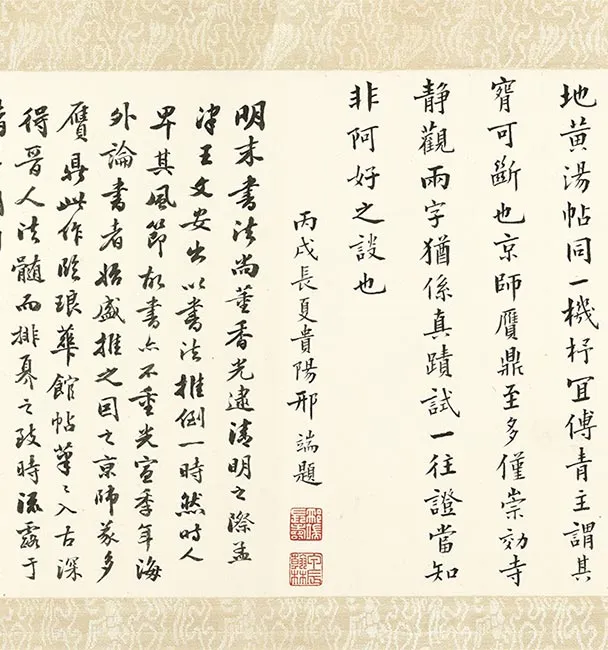 地黃湯帖同一機杼宜傅青主謂其
甯可斷也京師贋鼎至多僅崇効寺
靜觀兩字猶係真蹟試一往證當知
非阿好之談也
丙戌長夏貴陽邢端題
明末書法尚董香光逮清明之際孟
津王文安出以書法推倒一時然時人
卑其風節故書亦不重光宣季年海
外論書者始盛推之因之京師家多
贋鼎此作臨琅華館帖筆〻入古深
得晉人法髓而排奡之致時流露于